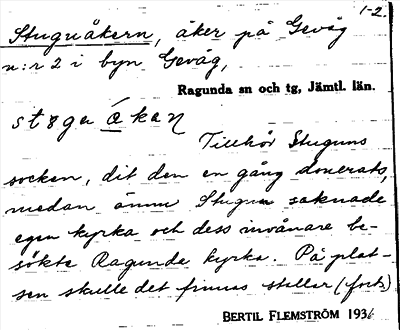 1-2.
Stuguåkern, åker på Gevåg
n:r 2 i byn Gevåg,
Ragunda sn och tg, Jämtl. län.
Tillhör Stuguns
socken, dit den en gång donerats,
medan ännu Stugun saknade
egen kyrka och dess invånare be-
sökte Ragunda kyrka. På plat-
sen skulle det finnas stallar (forts)
BERTIL FLEMSTRÖM 1936